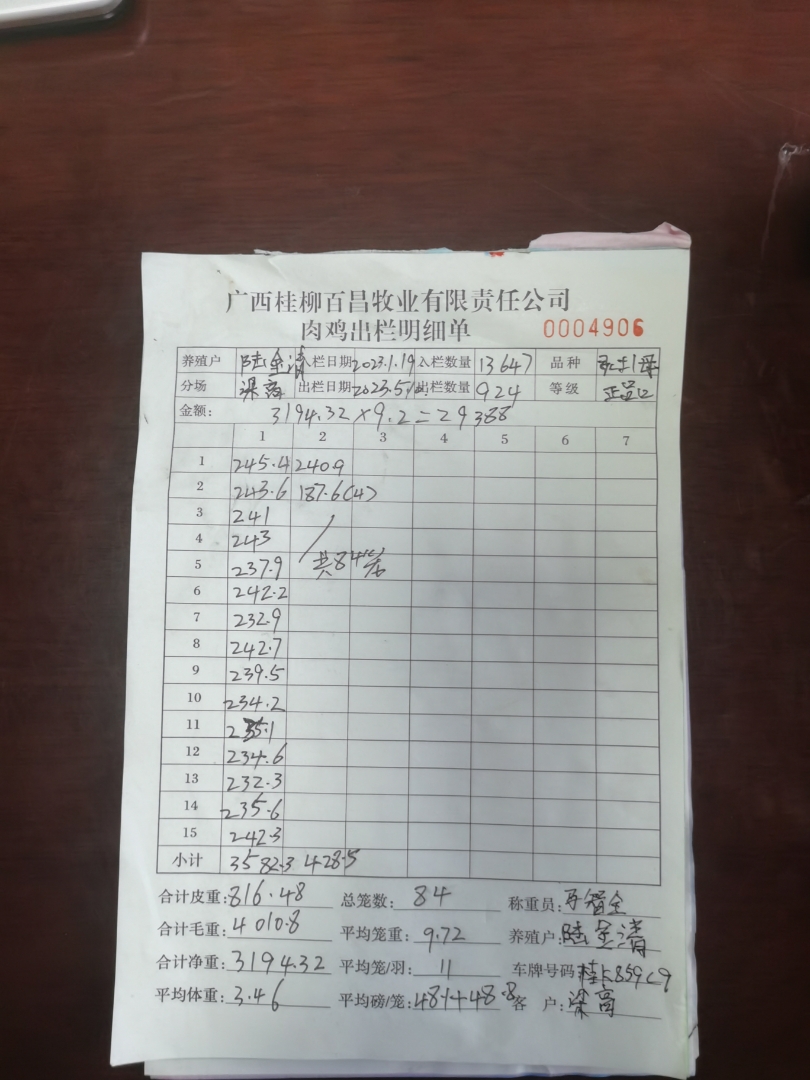 广西桂柳百昌牧业有限责任公司
肉鸡出栏明细单 0004906
养殖户 陆金清 入栏日期 2023.1.19 入栏数量 13647 品种
分场 梁高 出栏日期 2023.5 出栏数量 924 等级 正品
金额: 3194.32×9.2=29388
1 2 3 4 5 6 7
1 245.4 240.9
2 243.6 187.6(4)
3 241
4 243
5 237.9 共84笼
6 242.2
7 232.9
8 242.7
9 239.5
10 234.2
11 235.1
12 234.6
13 232.3
14 235.6
15 242.3
小计 3582.3 428.5
合计皮重: 816.48 总笼数: 84 称重员:
合计毛重: 4010.8 平均笼重: 9.72 养殖户: 陆金清
合计净重: 3194.32 平均笼/羽: 11 车牌号码 桂K859C9
平均体重: 3.46 平均磅/笼: 481+48.8 客 户: 梁高